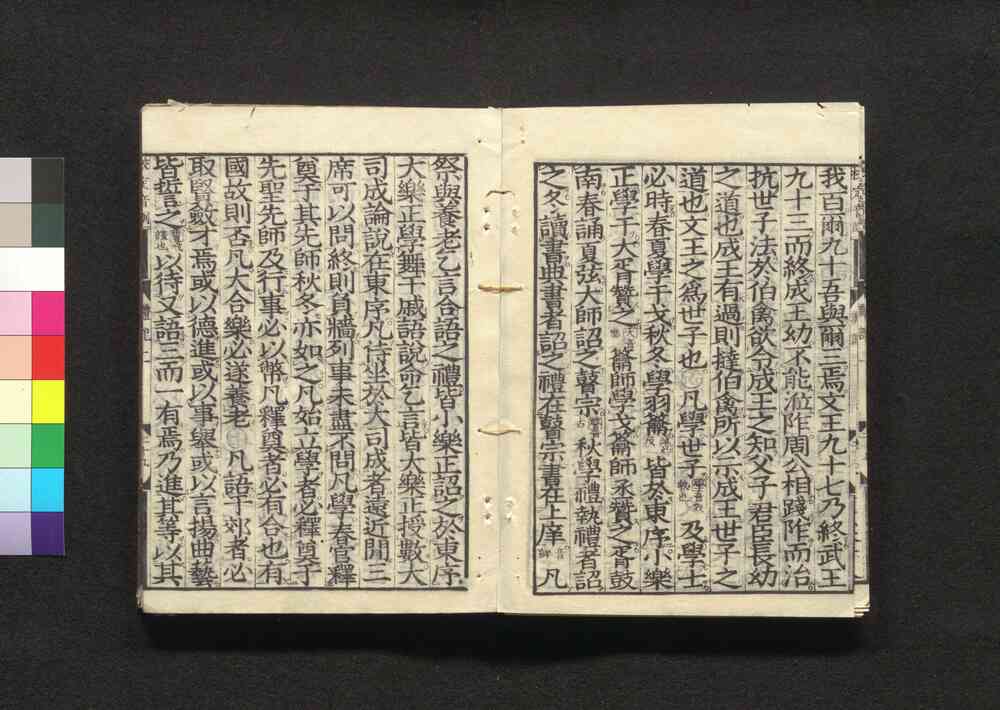 我百爾九十吾與爾三焉文王九十七乃終武王
九十三而終成王幼不能涖阼周公相踐阼而治
抗世子法於伯禽欲令成王之知父子君臣長幼
之道也成王有過則撻伯禽所以示成王世子之
道也文王之爲世子也凡學世子及學士
必時春夏學干戈秋冬學羽籥皆於東序小樂
正學干大胥贊之籥師學戈籥師丞贊之胥鼓
南春誦夏弦大師詔之瞽宗秋學禮執禮者詔
之冬讀書典書者詔之禮在瞽宗書在上庠凡
祭與養老乞言合語之禮皆小樂正詔之於東序
大樂正學舞干戚語說命乞言皆大樂正授數大
司成論說在東序凡侍坐於大司成者遠近間三
席可以問終則負牆列事未盡不問凡學春官釋
奠于其先師秋冬亦如之凡始立學者必釋奠于
先聖先師及行事必以幣凡釋奠者必有合也有
國故則否凡大合樂必遂養老凡語于郊者必
取賢斂才焉或以德進或以事舉或以言揚曲藝
皆誓之以待又語三而一有焉乃進其等以其